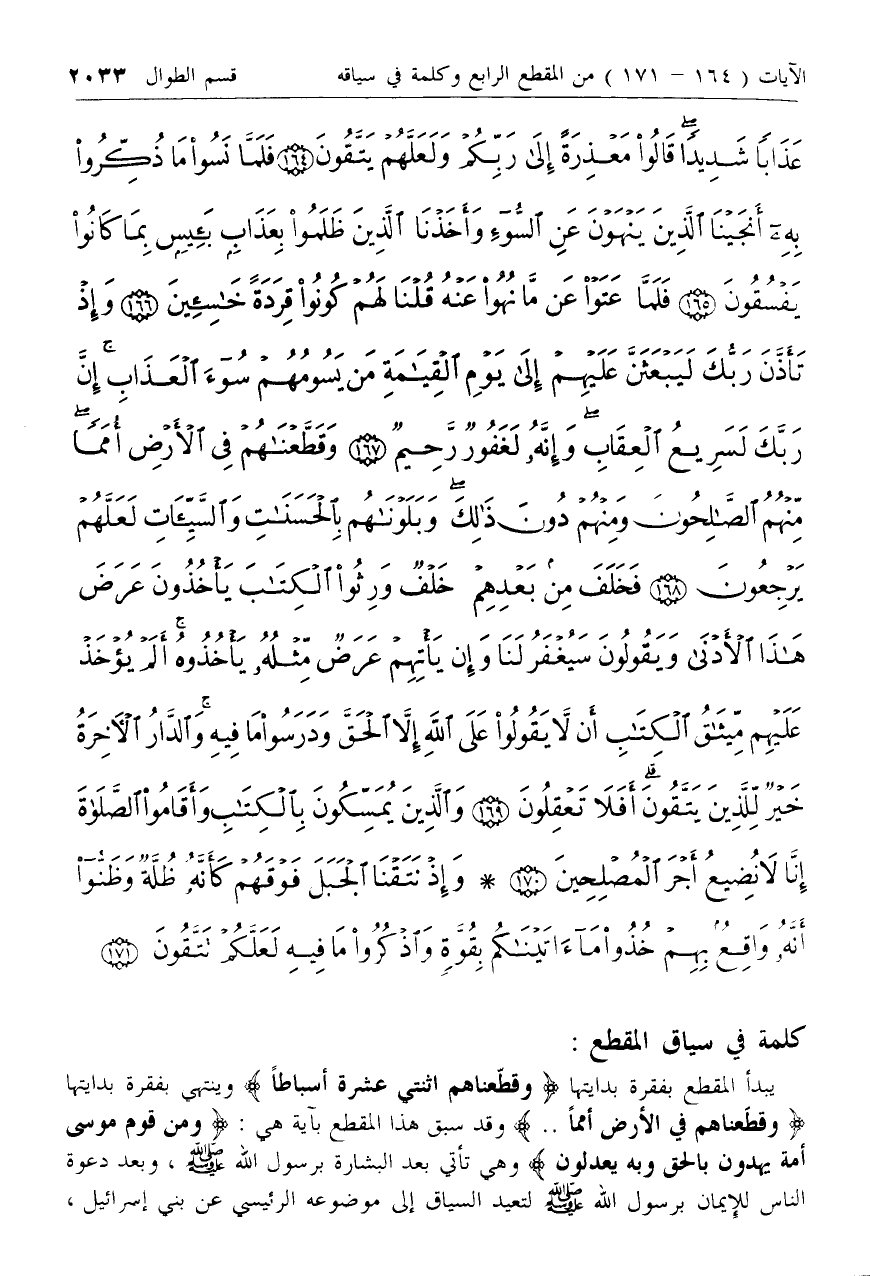 الآيات ( ١٦٤ – ١٧١ ) من المقطع الرابع وكلمة في سياقه قسم الطوال ٢٠٣٣
عَذَابًا شَدِيدًاۖ قَالُوا۟ مَعْذِرَةً إِلَىٰ رَبِّكُمْ وَلَعَلَّهُمْ يَتَّقُونَ ۝١٦٤ فَلَمَّا نَسُوا۟ مَا ذُكِّرُوا۟
بِهِۦٓ أَنجَيْنَا ٱلَّذِينَ يَنْهَوْنَ عَنِ ٱلسُّوٓءِ وَأَخَذْنَا ٱلَّذِينَ ظَلَمُوا۟ بِعَذَابٍۭ بَـِٔيسٍۭ بِمَا كَانُوا۟
يَفْسُقُونَ ۝١٦٥ فَلَمَّا عَتَوْا۟ عَن مَّا نُهُوا۟ عَنْهُ قُلْنَا لَهُمْ كُونُوا۟ قِرَدَةً خَـٰسِـِٔينَ ۝١٦٦ وَإِذْ
تَأَذَّنَ رَبُّكَ لَيَبْعَثَنَّ عَلَيْهِمْ إِلَىٰ يَوْمِ ٱلْقِيَـٰمَةِ مَن يَسُومُهُمْ سُوٓءَ ٱلْعَذَابِۚ إِنَّ
رَبَّكَ لَسَرِيعُ ٱلْعِقَابِۖ وَإِنَّهُۥ لَغَفُورٌ رَّحِيمٌ ۝١٦٧ وَقَطَّعْنَـٰهُمْ فِى ٱلْأَرْضِ أُمَمًاۖ
مِّنْهُمُ ٱلصَّـٰلِحُونَ وَمِنْهُمْ دُونَ ذَٰلِكَۖ وَبَلَوْنَـٰهُم بِٱلْحَسَنَـٰتِ وَٱلسَّيِّـَٔاتِ لَعَلَّهُمْ
يَرْجِعُونَ ۝١٦٨ فَخَلَفَ مِنۢ بَعْدِهِمْ خَلْفٌ وَرِثُوا۟ ٱلْكِتَـٰبَ يَأْخُذُونَ عَرَضَ
هَـٰذَا ٱلْأَدْنَىٰ وَيَقُولُونَ سَيُغْفَرُ لَنَا وَإِن يَأْتِهِمْ عَرَضٌ مِّثْلُهُۥ يَأْخُذُوهُۚ أَلَمْ يُؤْخَذْ
عَلَيْهِم مِّيثَـٰقُ ٱلْكِتَـٰبِ أَن لَّا يَقُولُوا۟ عَلَى ٱللَّهِ إِلَّا ٱلْحَقَّ وَدَرَسُوا۟ مَا فِيهِۚ وَٱلدَّارُ ٱلْـَٔاخِرَةُ
خَيْرٌ لِّلَّذِينَ يَتَّقُونَۗ أَفَلَا تَعْقِلُونَ ۝١٦٩ وَٱلَّذِينَ يُمَسِّكُونَ بِٱلْكِتَـٰبِ وَأَقَامُوا۟ ٱلصَّلَوٰةَ
إِنَّا لَا نُضِيعُ أَجْرَ ٱلْمُصْلِحِينَ ۝١٧٠ * وَإِذْ نَتَقْنَا ٱلْجَبَلَ فَوْقَهُمْ كَأَنَّهُۥ ظُلَّةٌ وَظَنُّوٓا۟
أَنَّهُۥ وَاقِعٌۢ بِهِمْ خُذُوا۟ مَآ ءَاتَيْنَـٰكُم بِقُوَّةٍ وَٱذْكُرُوا۟ مَا فِيهِ لَعَلَّكُمْ تَتَّقُونَ ۝١٧١
كلمة في سياق المقطع :
يبدأ المقطع بفقرة بدايتها ﴿ وقطّعناهم اثنتي عشرة أسباطاً ﴾ وينتهي بفقرة بدايتها
﴿ وقطّعناهم في الأرض أمماً .. ﴾ وقد سبق هذا المقطع بآية هي : ﴿ ومن قوم موسى
أمة يهدون بالحق وبه يعدلون ﴾ وهي تأتي بعد البشارة برسول الله ﷺ ، وبعد دعوة
الناس للإيمان برسول الله ﷺ لتعيد السياق إلى موضوعه الرئيسي عن بني إسرائيل ،